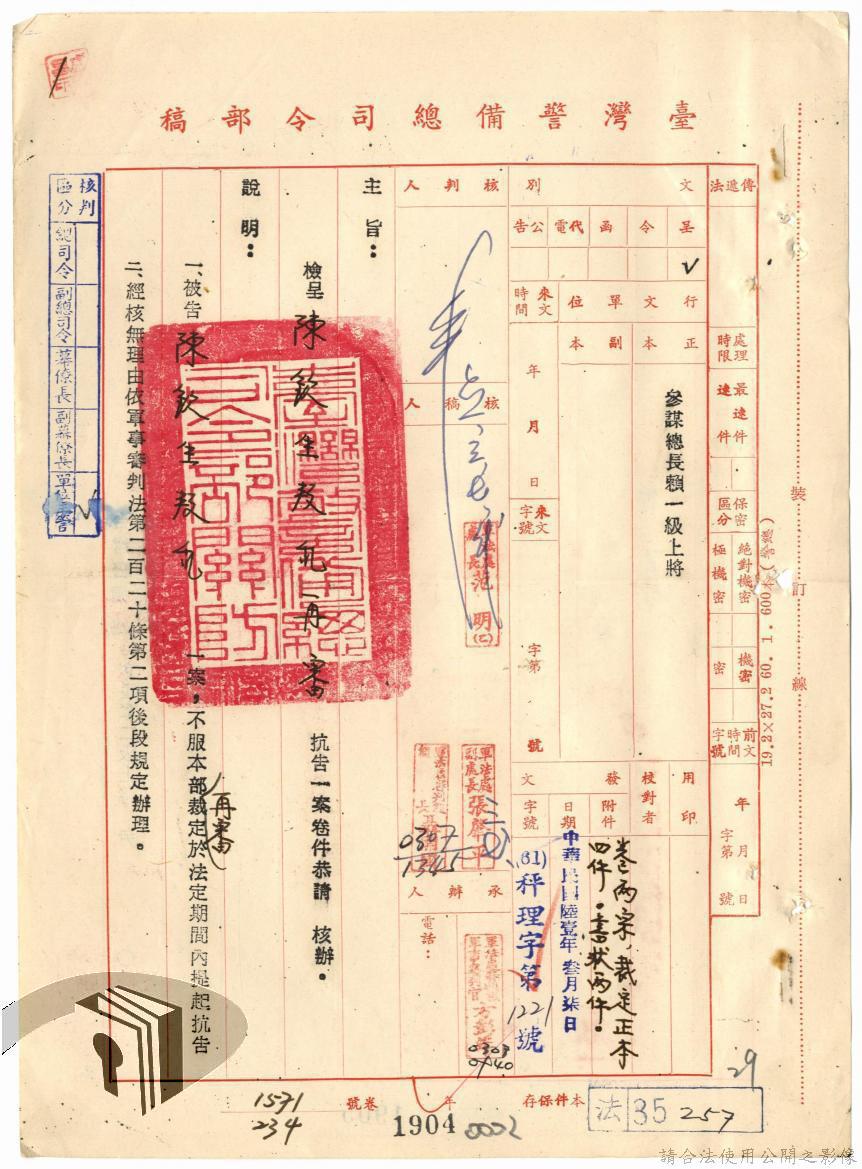 臺灣警備總司令部稿
傳遞法
文別
呈
令
函
代電
公告
✓
處理時限
最速件
速件
保密區分
絕對機密
極機密
機密
密
前文時間字號
年月日
字第號
行文單位
正本
副本
參謀總長賴一級上將
來文時間
年月日
來文字號
字第
號
用印
校對者
發文
附件
日期
字號
卷兩宗,裁定正本
四件。書狀兩件。
中華民國陸壹年叁月柒日
(61)秤理字第1221號
核判人
核稿人
范明
軍法處副處長張
0307
1345
承辦人
電話:
0303
0940
主旨:
檢呈陳欽生叛亂再審抗告一案卷件恭請 核辦。
說明:
一、被告陳欽生叛亂一案,不服本部裁定於法定期間內提起抗告
(再審)
二、經核無理由依軍事審判法第二百二十條第二項後段規定辦理。
核判區分
總司令
副總司令
幕僚長
副幕僚長
單位主管
裝訂線
19.2×27.2 60.1.600本(警總)
本件保存
年
卷號
1571
234
1904
0002
29
法 35 257
請合法使用公開之影像